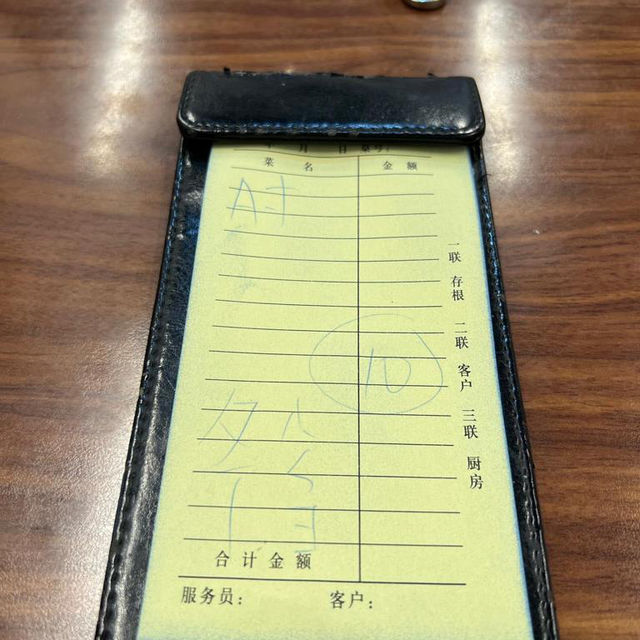 月 日
菜 名 金 额
A寸
10
合 计 金 额
服务员： 客户：
一联 存根 二联 客户 三联 厨房